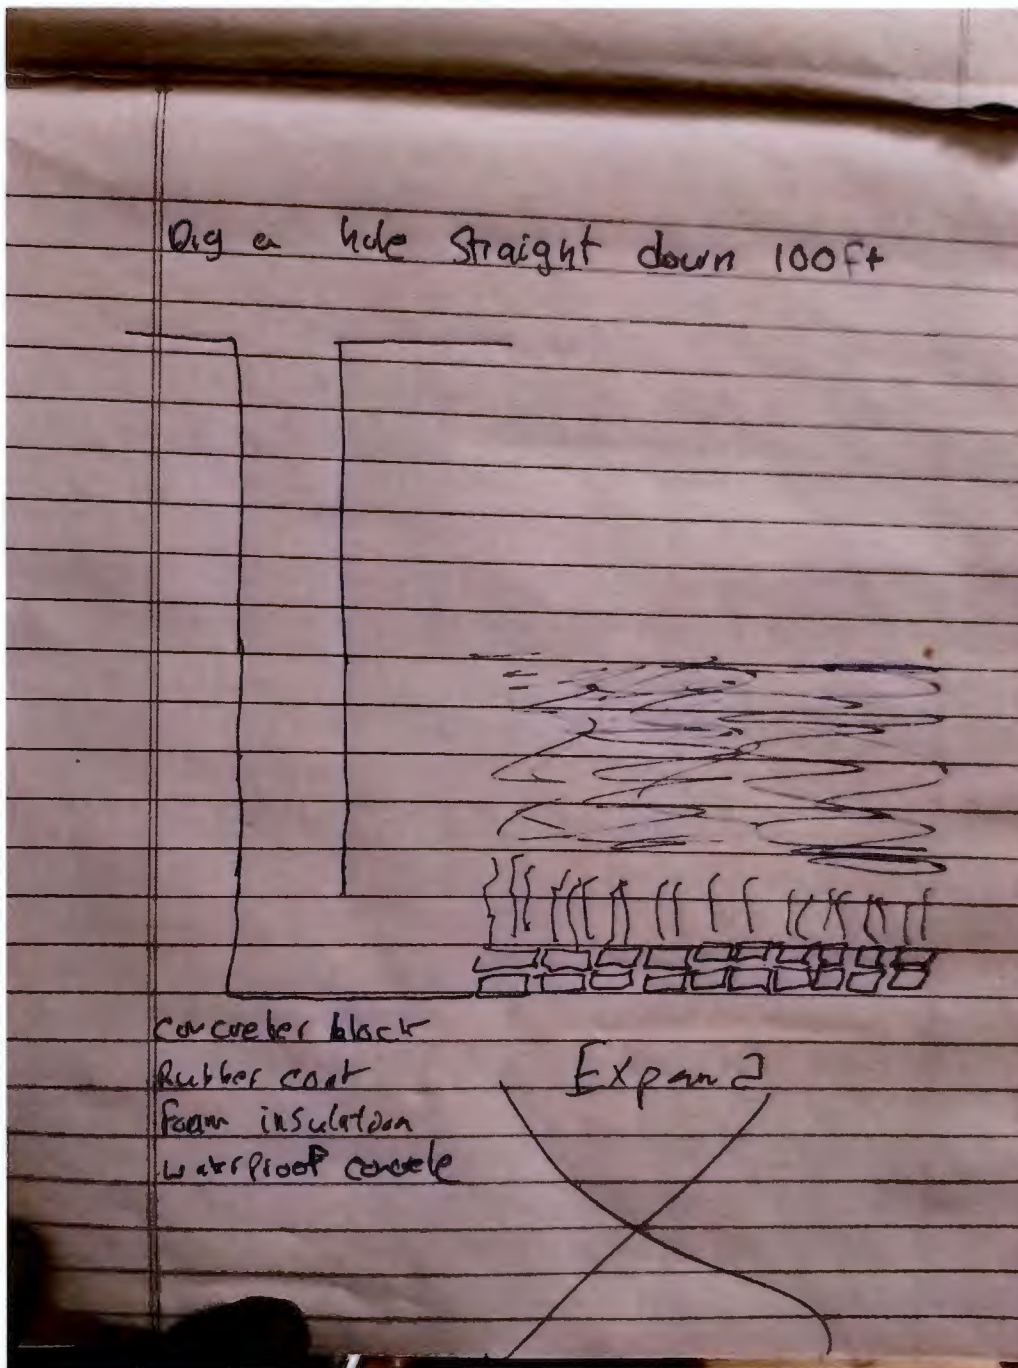 Dig a hole Straight down 100ft
concreter block
Rubber coat
foam insulation
waterproof concele
Expand